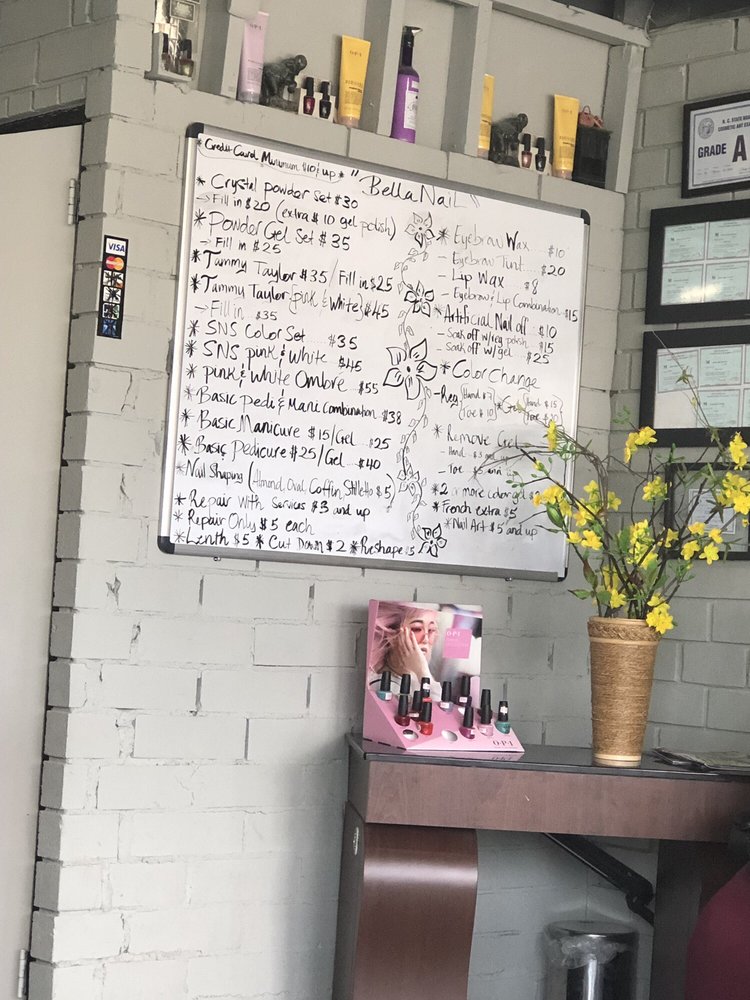 *Credit Card Minimum $10 & up*
"Bella NaiL"
* Crystal powder set $30
→ Fill in $20 (extra $10 gel polish)
* Powder Gel Set $35
→ Fill in $25
* Tammy Taylor $35 / Fill in $25
* Tammy Taylor {pink & White} $45
→ Fill in $35
* SNS Color Set $35
* SNS pink & White $45
* pink & White Ombre $55
* Basic Pedi & Mani Combination $38
* Basic Manicure $15/Gel $25
* Basic Pedicure $25/Gel $40
* Nail Shaping (Almond, Oval, Coffin, Stiletto $5)
* Repair with services $3 and up
* Repair Only $5 each
* Lenth $5 * Cut Down $2 * Reshape $5
* Eyebrow Wax $10
- Eyebrow Tint $20
- Lip Wax $8
- Eyebrow & Lip Combination $15
* Artificial Nail off $10
- Soak off w/reg polish $15
- Soak off w/gel $25
* Color Change
- Reg {Hand $7 * Gel {Hand $15
{Toe $10} {Toe $20}
* Remove Gel
- Hand and up
- Toe $5 and up
* 2 or more color gel
* French extra $5
* Nail Art $5 and up
VISA
MasterCard
GRADE A
O·P·I
O·P·I
O·P·I